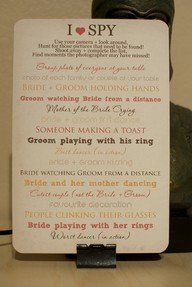 I ♥ SPY
Use your camera + look around.
Hunt for those pictures that need to be found!
Shoot away + complete the list.
Find moments the photographer may have missed!
Group photo of everyone at your table
photo of each family or couple at your table
BRIDE + GROOM HOLDING HANDS
Groom watching Bride from a distance
Mother of the Bride Crying
bride + groom first dance
SOMEONE MAKING A TOAST
Groom playing with his ring
Best dancer (in action)
bride + groom kissing
BRIDE WATCHING GROOM FROM A DISTANCE
Bride and her mother dancing
Cutest couple (not the Bride + Groom)
favourite decoration
PEOPLE CLINKING THEIR GLASSES
Bride playing with her rings
Worst dancer (in action)